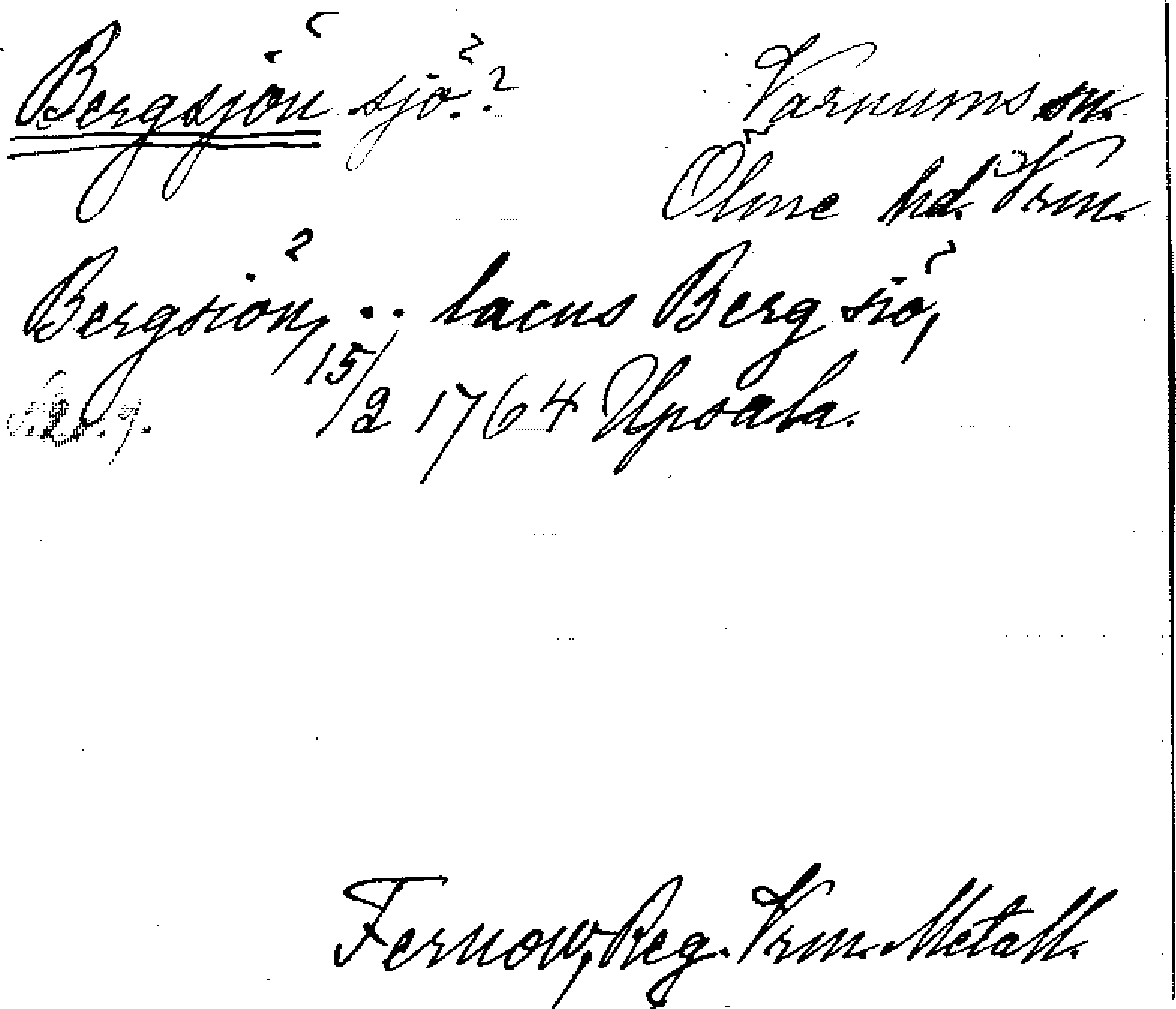 Bergsjön sjö? Varnums sn.
Ölme hd. Vrm.
Bergsiön, .. lacus Berg siö,
15/2 1764 Upsala.
Fernow, Reg. Vrm. Metall.